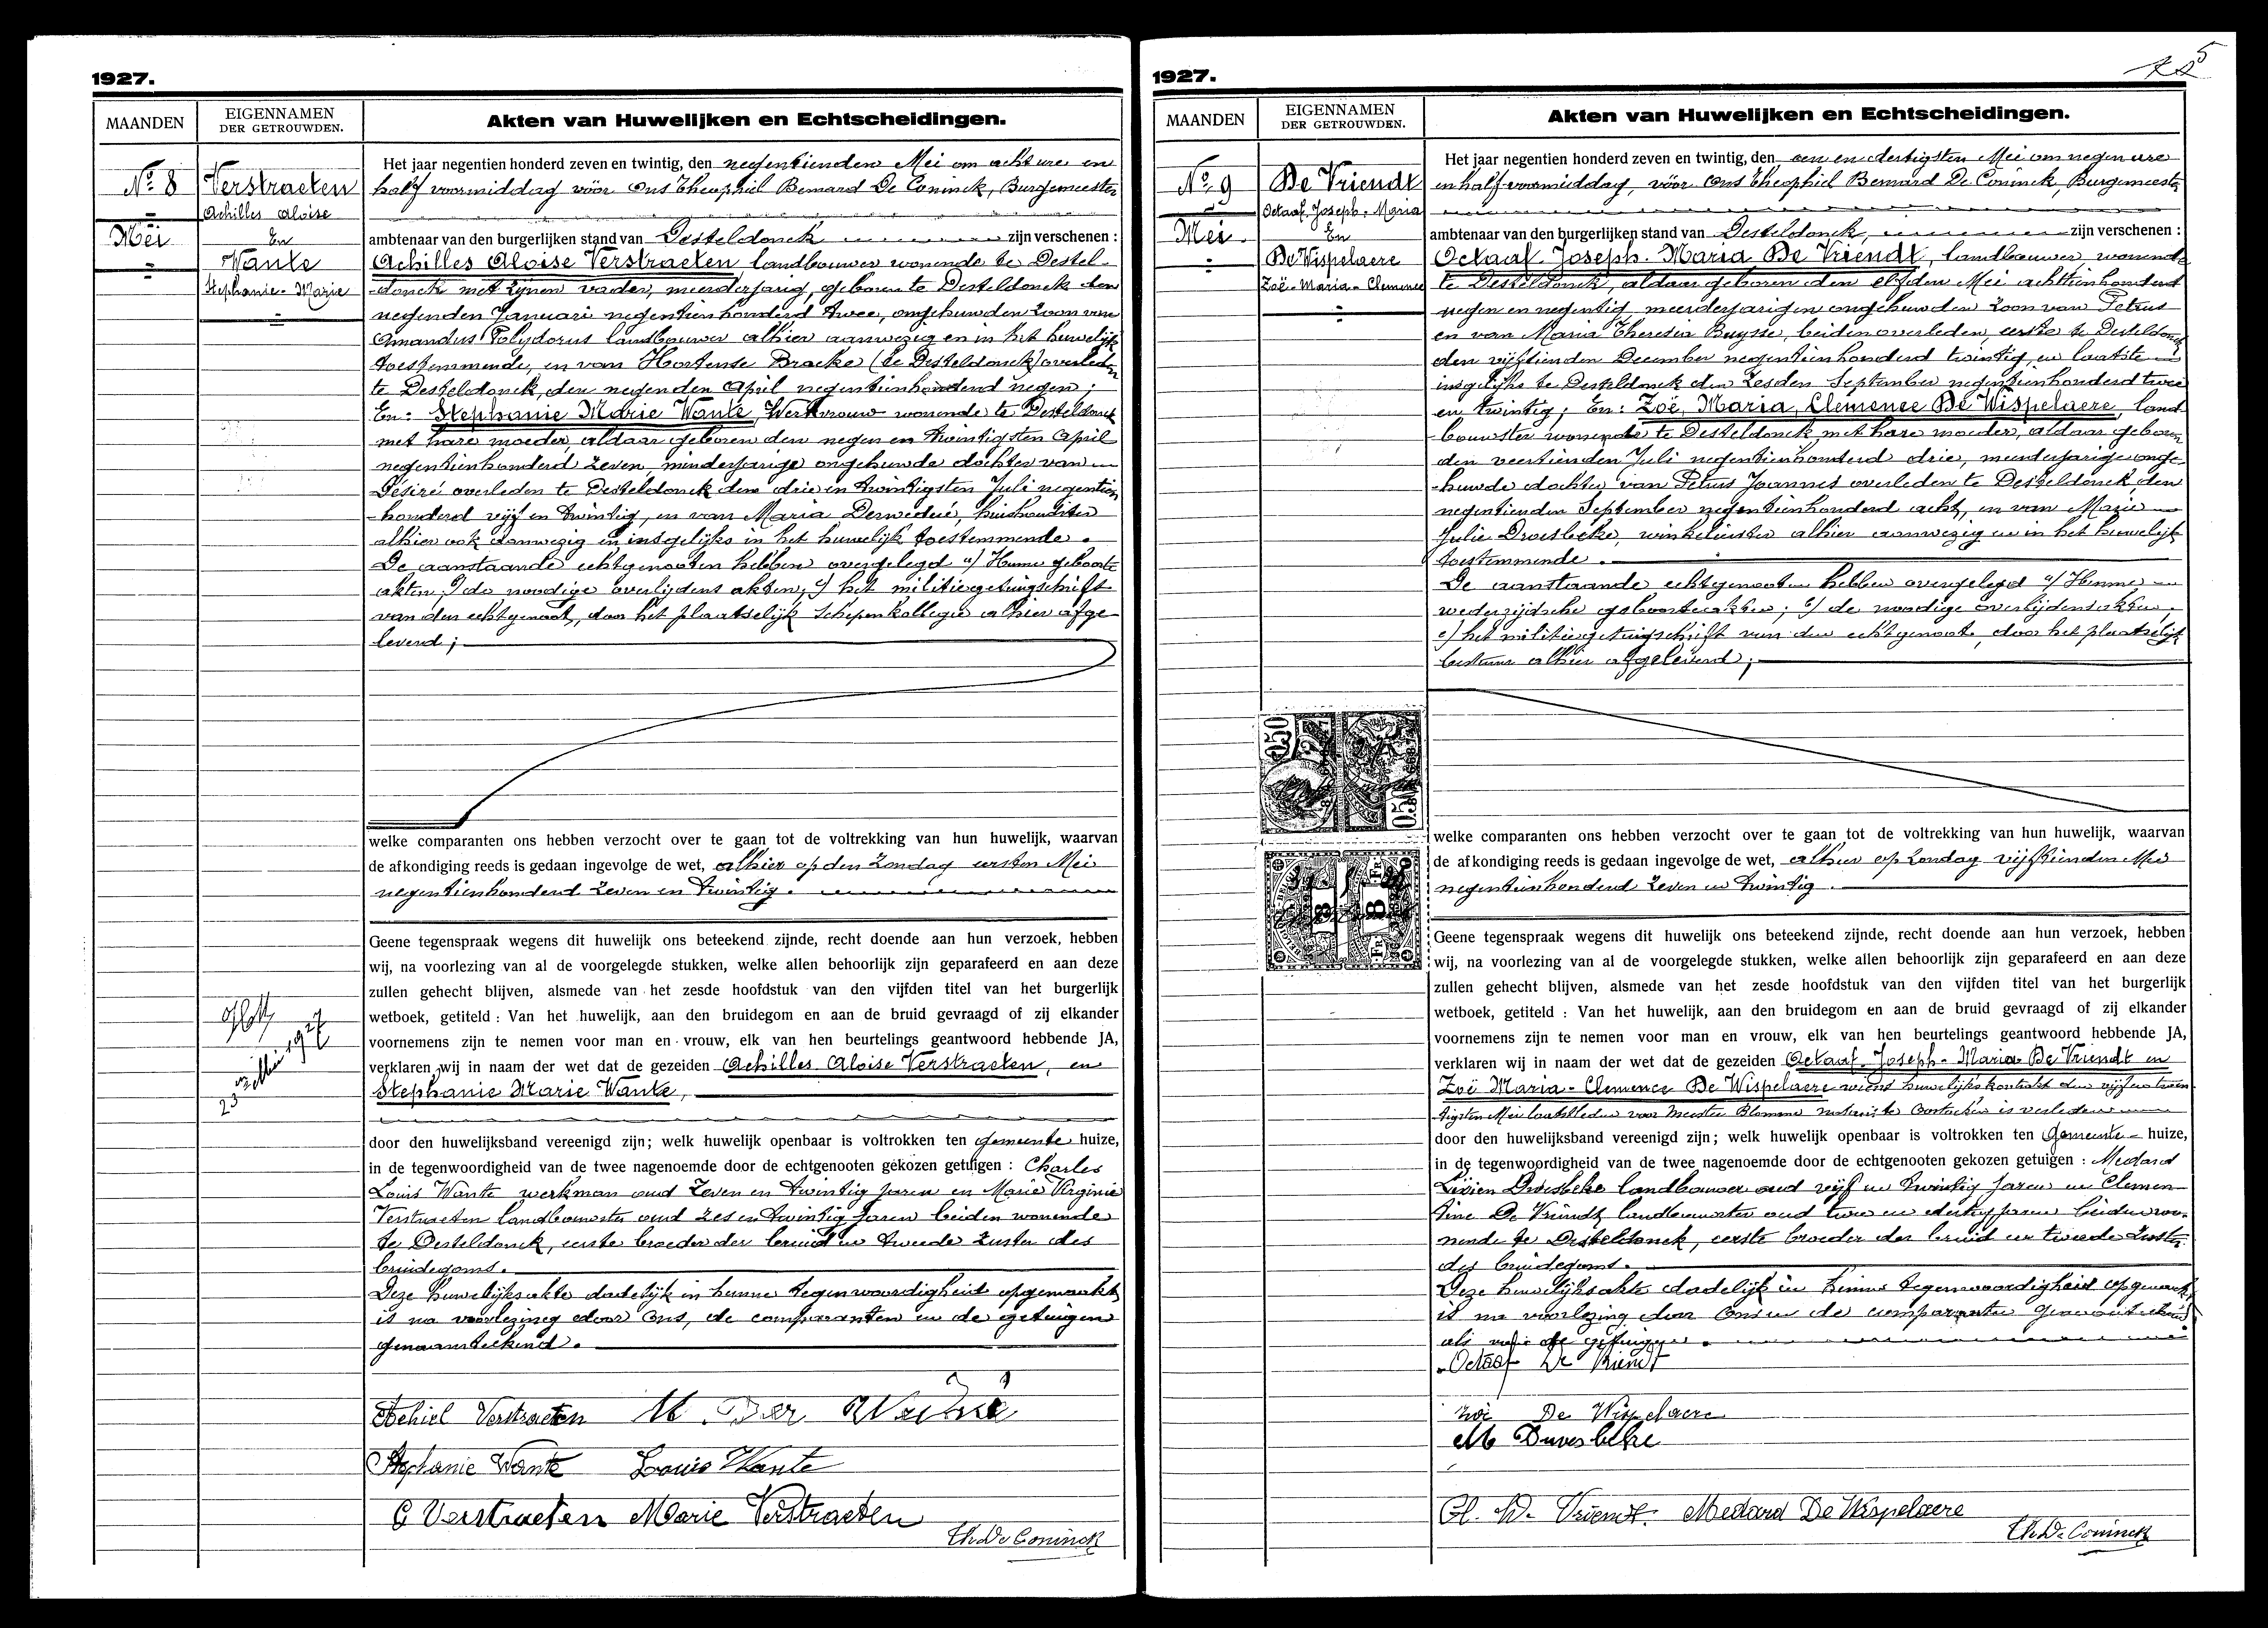 1927.
MAANDEN
EIGENNAMEN
DER GETROUWDEN.
Akten van Huwelijken en Echtscheidingen.
No. 8
Mei
Verstraeten
Achilles Aloïse
En
Wante
Stephanie-Marie
Het jaar negentien honderd zeven en twintig, den negentienden Mei om acht ure en
half voormiddag vóór Ons Theophiel Bernard De Coninck, Burgemeester
ambtenaar van den burgerlijken stand van Desteldonck zijn verschenen :
Achilles Aloïse Verstraeten, landbouwer wonende te Destel-
-donck met zijnen vader, meerderjarig, geboren te Desteldonck den
negenden Januari negentienhonderd twee, ongehuwden zoon van
Amandus Polydorus landbouwer alhier aanwezig en in het huwelijk
toestemmende, en van Hortense Bracke (te Desteldonck) overleden
te Desteldonck, den negenden April negentienhonderd negen;
En: Stephanie Marie Wante, Werkvrouw wonende te Desteldonck
met hare moeder, aldaar geboren den negen en twintigsten April
negentienhonderd zeven, minderjarige ongehuwde dochter van
Désiré overleden te Desteldonck den drie en twintigsten Juli negentien
-honderd vijf en twintig, en van Maria Derwedue, huishoudster
alhier ook aanwezig en insgelijks in het huwelijk toestemmende.
De aanstaande echtgenooten hebben overgelegd a/ Hunne geboorte
akten; b/ de noodige overlijdens akten; c/ het militiegetuigschrift
van den echtgenoot, door het plaatselijk Schepenkollegie alhier afge
leverd;
welke comparanten ons hebben verzocht over te gaan tot de voltrekking van hun huwelijk, waarvan
de afkondiging reeds is gedaan ingevolge de wet, alhier op den Zondag eersten Mei
negentienhonderd zeven en twintig.
Geene tegenspraak wegens dit huwelijk ons beteekend zijnde, recht doende aan hun verzoek, hebben
wij, na voorlezing van al de voorgelegde stukken, welke allen behoorlijk zijn geparafeerd en aan deze
zullen gehecht blijven, alsmede van het zesde hoofdstuk van den vijfden titel van het burgerlijk
wetboek, getiteld : Van het huwelijk, aan den bruidegom en aan de bruid gevraagd of zij elkander
voornemens zijn te nemen voor man en vrouw, elk van hen beurtelings geantwoord hebbende JA,
verklaren wij in naam der wet dat de gezeiden Achilles Aloïse Verstraeten, en
Stephanie Marie Wante,
23 Mei 1927
door den huwelijksband vereenigd zijn; welk huwelijk openbaar is voltrokken ten gemeente huize,
in de tegenwoordigheid van de twee nagenoemde door de echtgenooten gekozen getuigen : Charles
Louis Wante werkman oud zeven en twintig jaren en Marie Virginie
Verstraeten landbouwster oud zes en twintig jaren beiden wonende
te Desteldonck, eerste broeder der bruid en tweede zuster des
bruidegoms.
Deze huwelijksakte dadelijk in hunne tegenwoordigheid opgemaakt
is na voorlezing door Ons, de comparanten en de getuigen
genaamteekend.
Achiel Verstraeten M Der Weduë
Stephanie Wante Louis Wante
G Verstraeten Marie Verstraeten
Th. De Coninck
1927.
5
MAANDEN
EIGENNAMEN
DER GETROUWDEN.
Akten van Huwelijken en Echtscheidingen.
No. 9
Mei
De Vriendt
Octaaf-Joseph-Maria
En
De Wispelaere
Zoë-Maria-Clemence
Het jaar negentien honderd zeven en twintig, den een en dertigsten Mei om negen ure
en half voormiddag, vóór Ons Theophiel Bernard De Coninck, Burgemeester
ambtenaar van den burgerlijken stand van Desteldonck, zijn verschenen :
Octaaf-Joseph-Maria De Vriendt, landbouwer wonende
te Desteldonck, aldaar geboren den elfden Mei achttienhonderd
negen en negentig, meerderjarigen ongehuwden zoon van Petrus
en van Maria Theresia Buysse, beiden overleden, eerste te Desteldonck
den vijftienden December negentienhonderd twintig en laatste
insgelijks te Desteldonck den zesden September negentienhonderd twee
en twintig; En: Zoë, Maria, Clemence De Wispelaere, land
-bouwster wonende te Desteldonck met hare moeder, aldaar geboren
den veertienden Juli negentienhonderd drie, meerderjarige onge-
-huwde dochter van Petrus Joannes overleden te Desteldonck den
negentienden September negentienhonderd acht, en van Marie
Julie Droesbeke, winkelierster alhier aanwezig en in het huwelijk
toestemmende.
De aanstaande echtgenooten hebben overgelegd a/ Hunne
wederzijdsche geboorteakten; b/ de noodige overlijdensakten,
c/ het militiegetuigschrift van den echtgenoot, door het plaatselijk
bestuur alhier afgeleverd;
050
050
8
FR
8
FR
welke comparanten ons hebben verzocht over te gaan tot de voltrekking van hun huwelijk, waarvan
de afkondiging reeds is gedaan ingevolge de wet, alhier op Zondag vijftienden Mei
negentienhonderd zeven en twintig.
Geene tegenspraak wegens dit huwelijk ons beteekend zijnde, recht doende aan hun verzoek, hebben
wij, na voorlezing van al de voorgelegde stukken, welke allen behoorlijk zijn geparafeerd en aan deze
zullen gehecht blijven, alsmede van het zesde hoofdstuk van den vijfden titel van het burgerlijk
wetboek, getiteld : Van het huwelijk, aan den bruidegom en aan de bruid gevraagd of zij elkander
voornemens zijn te nemen voor man en vrouw, elk van hen beurtelings geantwoord hebbende JA,
verklaren wij in naam der wet dat de gezeiden Octaaf-Joseph-Maria De Vriendt en
Zoë Maria-Clemence De Wispelaere wiens huwelijkskontrakt den vijf en twin-
tigsten Mei laatstleden voor Meester Blomme notaris te Oostacker is verleden
door den huwelijksband vereenigd zijn; welk huwelijk openbaar is voltrokken ten Gemeente- huize,
in de tegenwoordigheid van de twee nagenoemde door de echtgenooten gekozen getuigen : Medard
Livien Droesbeke landbouwer oud vijf en twintig jaren en Clemen-
tine De Vriendt landbouwster oud twee en dertig jaren beiden wo-
nende te Desteldonck, eerste broeder der bruid en tweede zuster
des bruidegoms.
Deze huwelijksakte dadelijk in hunne tegenwoordigheid opgemaakt,
is na voorlezing door Ons en de comparanten genaamteekend
als mede de getuigen.
Octaaf De Vriendt
Zoë De Wispelaere
M Druesbeke
Cl. De Vriendt. Medard De Wispelaere
Th. De Coninck